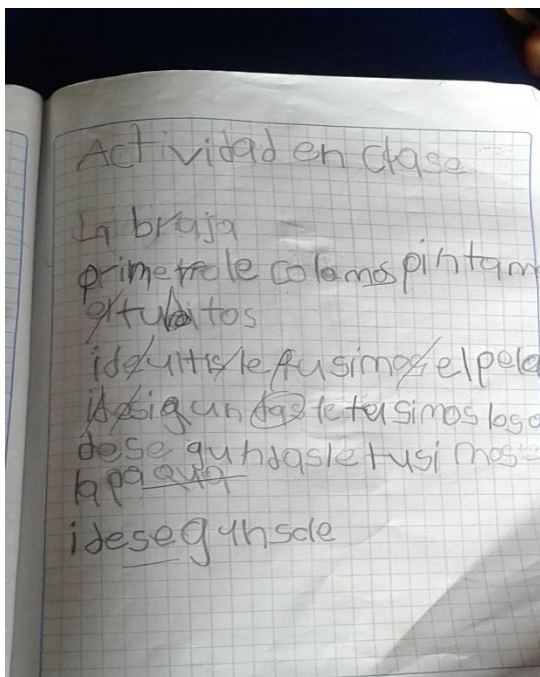 Actividad en clase
La braja
primero le colamos pintam
tubitos
ide ultis le pusimos el pelo
ide sigun das le tusimos los o
de segundas le tusimos
la pa
ide segunsde